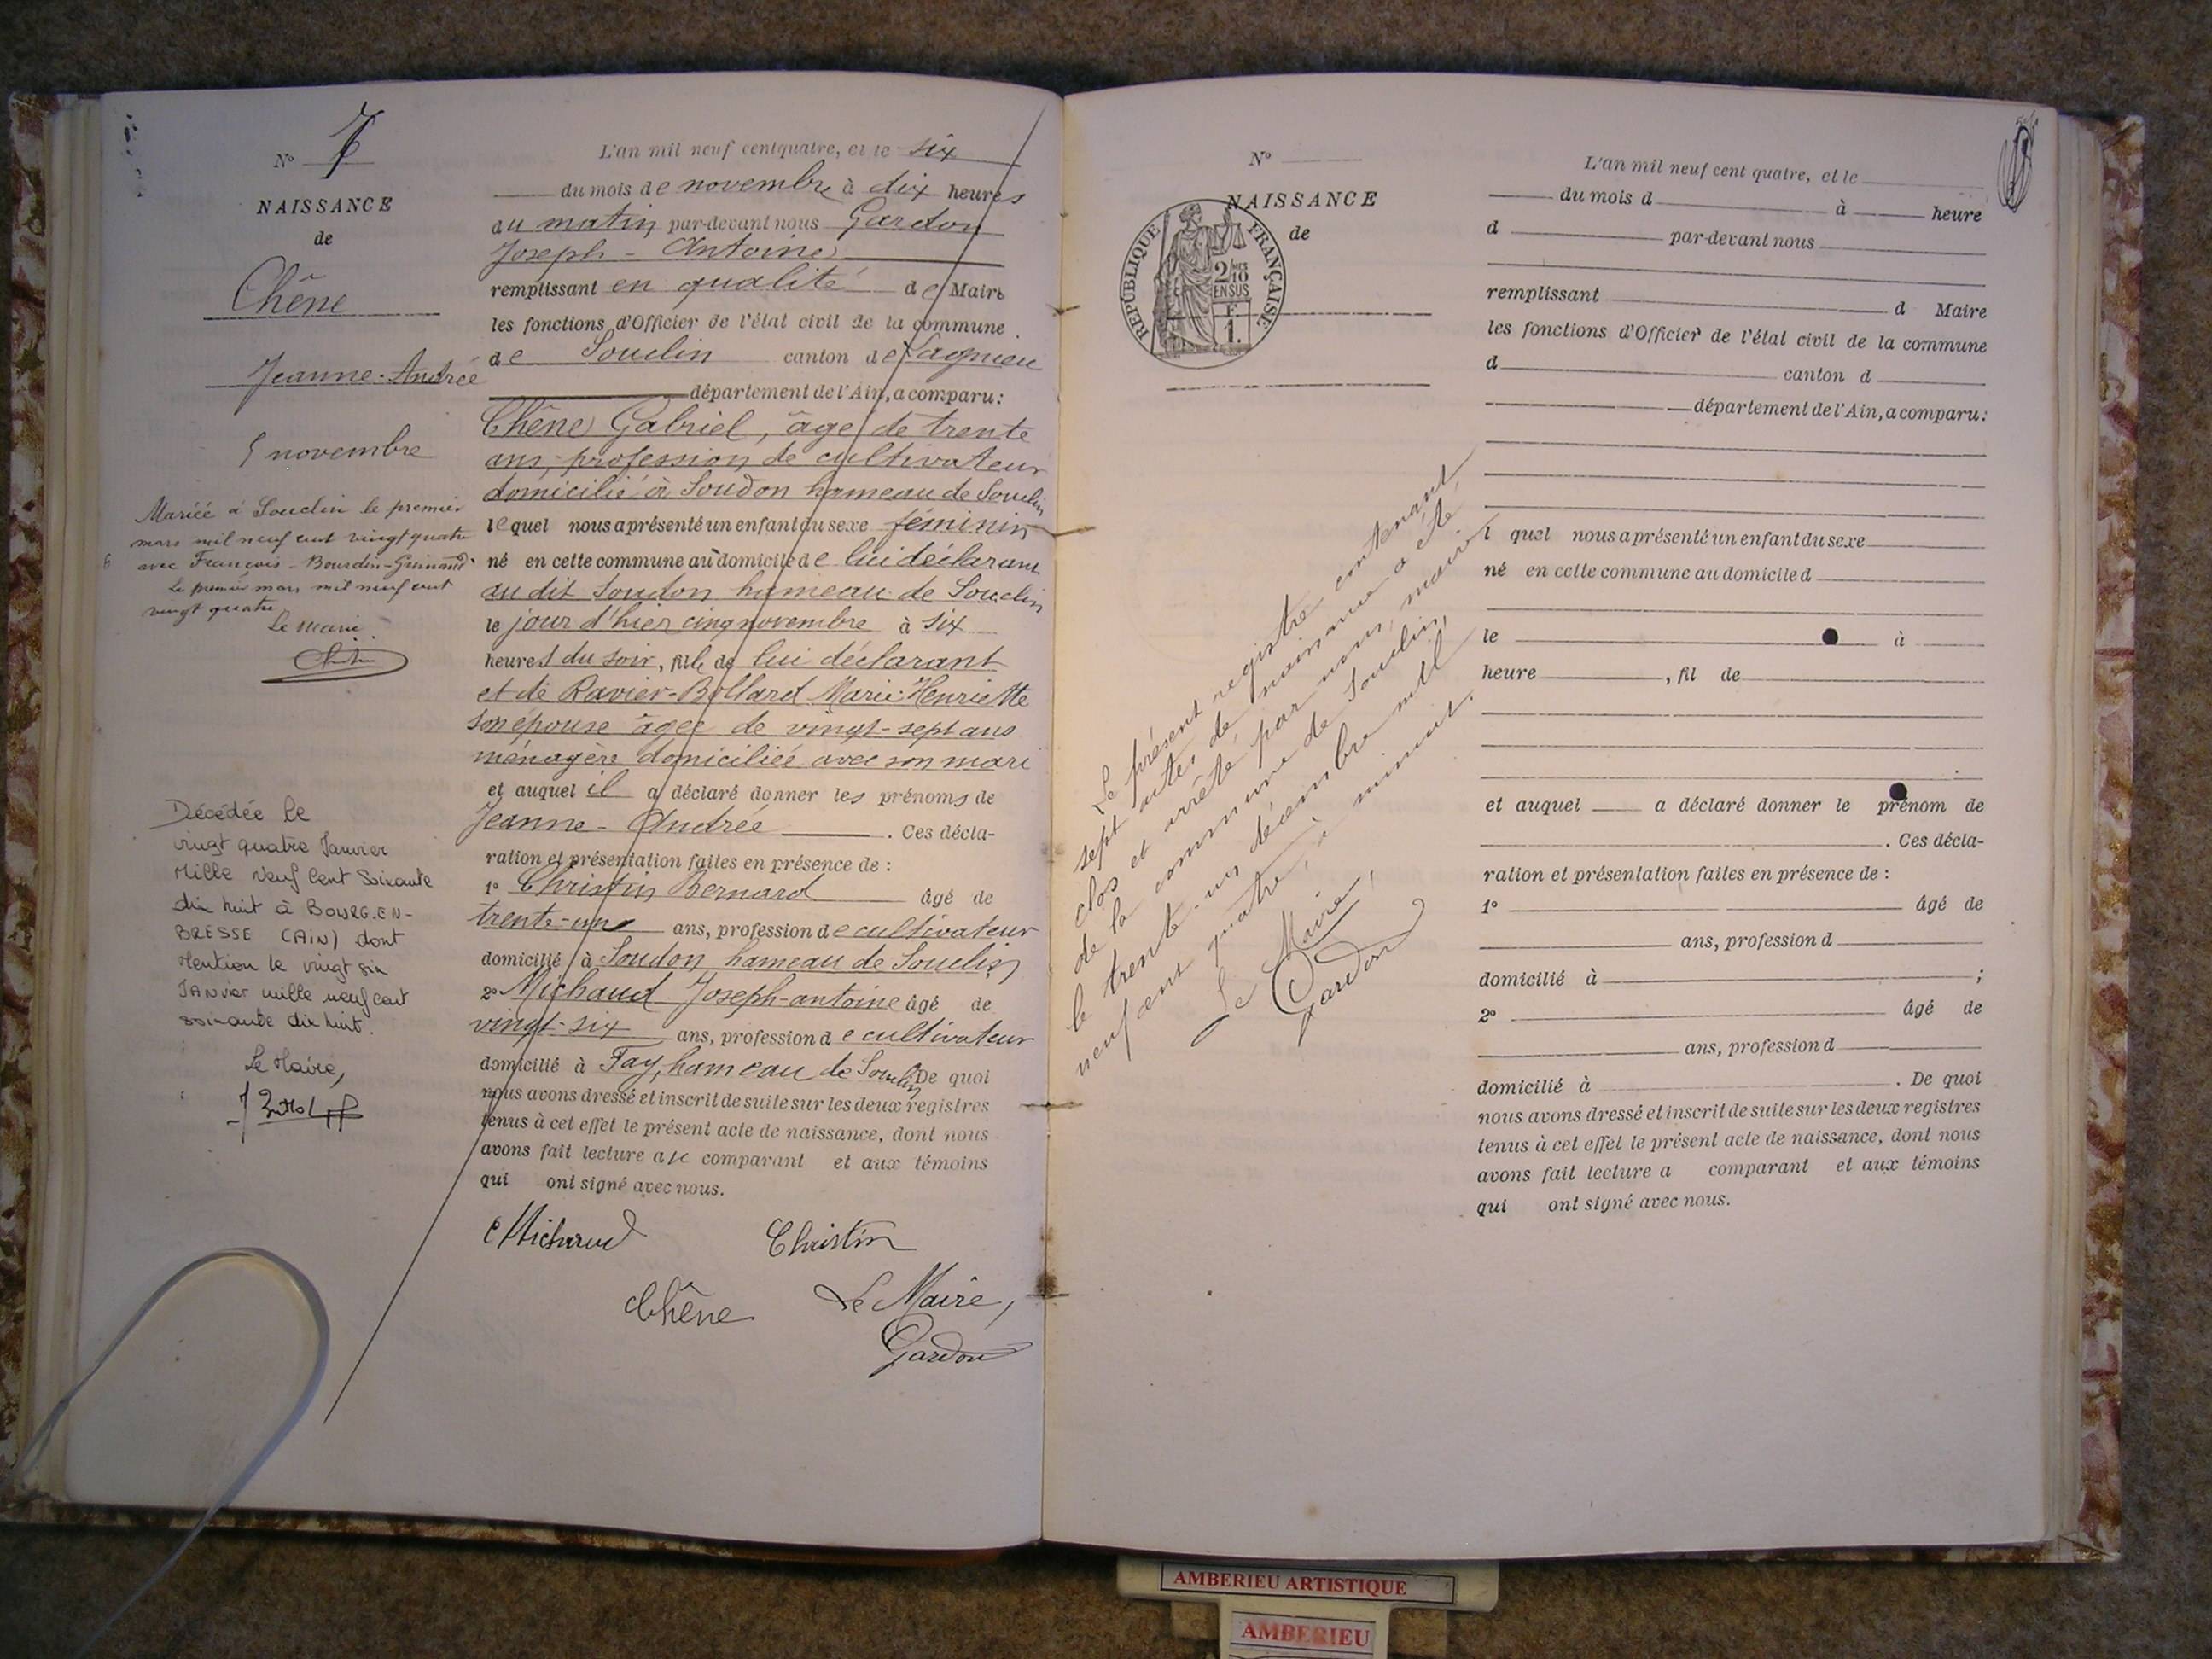 N° 7
NAISSANCE
de
Chêne
Jeanne-Andrée
5 novembre
Mariée à Souclin le premier
mars mil neuf cent vingt quatre
avec François Bourdin-Grimaud
Le premier mars mil neuf cent
vingt quatre
Le Maire
Décédée le
vingt quatre Janvier
Mille neuf Cent Soixante
dix huit à BOURG-EN-
BRESSE (AIN) dont
Mention le vingt six
JANvier mille neuf cent
soixante dix huit.
Le Maire,
L'an mil neuf cent quatre, et le six
du mois de novembre à dix heures
du matin par-devant nous Gardon
Joseph-Antoine
remplissant en qualité de Maire
les fonctions d'Officier de l'état civil de la commune
de Souclin canton de Lagnieu
département de l'Ain, a comparu:
Chêne Gabriel, âgé de trente
ans, profession de cultivateur
domicilié à Soudon hameau de Souclin
lequel nous a présenté un enfant du sexe féminin
né en cette commune au domicile de lui déclarant
au dit Soudon hameau de Souclin
le jour d'hier cinq novembre à six
heures du soir, fille de lui déclarant
et de Ravier-Bollard Marie-Henriette
son épouse âgée de vingt-sept ans
ménagère domiciliée avec son mari
et auquel il a déclaré donner les prénoms de
Jeanne-Andrée. Ces décla-
ration et présentation faites en présence de :
1° Christin Bernard âgé de
trente-un ans, profession de cultivateur
domicilié à Soudon hameau de Souclin
2° Michaud Joseph-antoine âgé de
vingt-six ans, profession de cultivateur
domicilié à Fay, hameau de Souclin De quoi
nous avons dressé et inscrit de suite sur les deux registres
tenus à cet effet le présent acte de naissance, dont nous
avons fait lecture au comparant et aux témoins
qui ont signé avec nous.
Michaud Christin
Chêne Le Maire,
Gardon
N°
NAISSANCE
de
RÉPUBLIQUE FRANÇAISE
2/10
EN SUS
F.
1.
Le présent registre contenant
sept actes de naissance a été
clos et arrêté par nous, maire
de la commune de Souclin,
le trente-un décembre mil
neuf cent quatre, à minuit.
Le Maire,
Gardon
L'an mil neuf cent quatre, et le
du mois d à heure
d par-devant nous
remplissant d Maire
les fonctions d'Officier de l'état civil de la commune
d canton d
département de l'Ain, a comparu:
l quel nous a présenté un enfant du sexe
né en cette commune au domicile d
le à
heure , fil de
et auquel a déclaré donner le prénom de
. Ces décla-
ration et présentation faites en présence de :
1° âgé de
ans, profession d
domicilié à ;
2° âgé de
ans, profession d
domicilié à . De quoi
nous avons dressé et inscrit de suite sur les deux registres
tenus à cet effet le présent acte de naissance, dont nous
avons fait lecture a comparant et aux témoins
qui ont signé avec nous.
AMBERIEU ARTISTIQUE
AMBERIEU